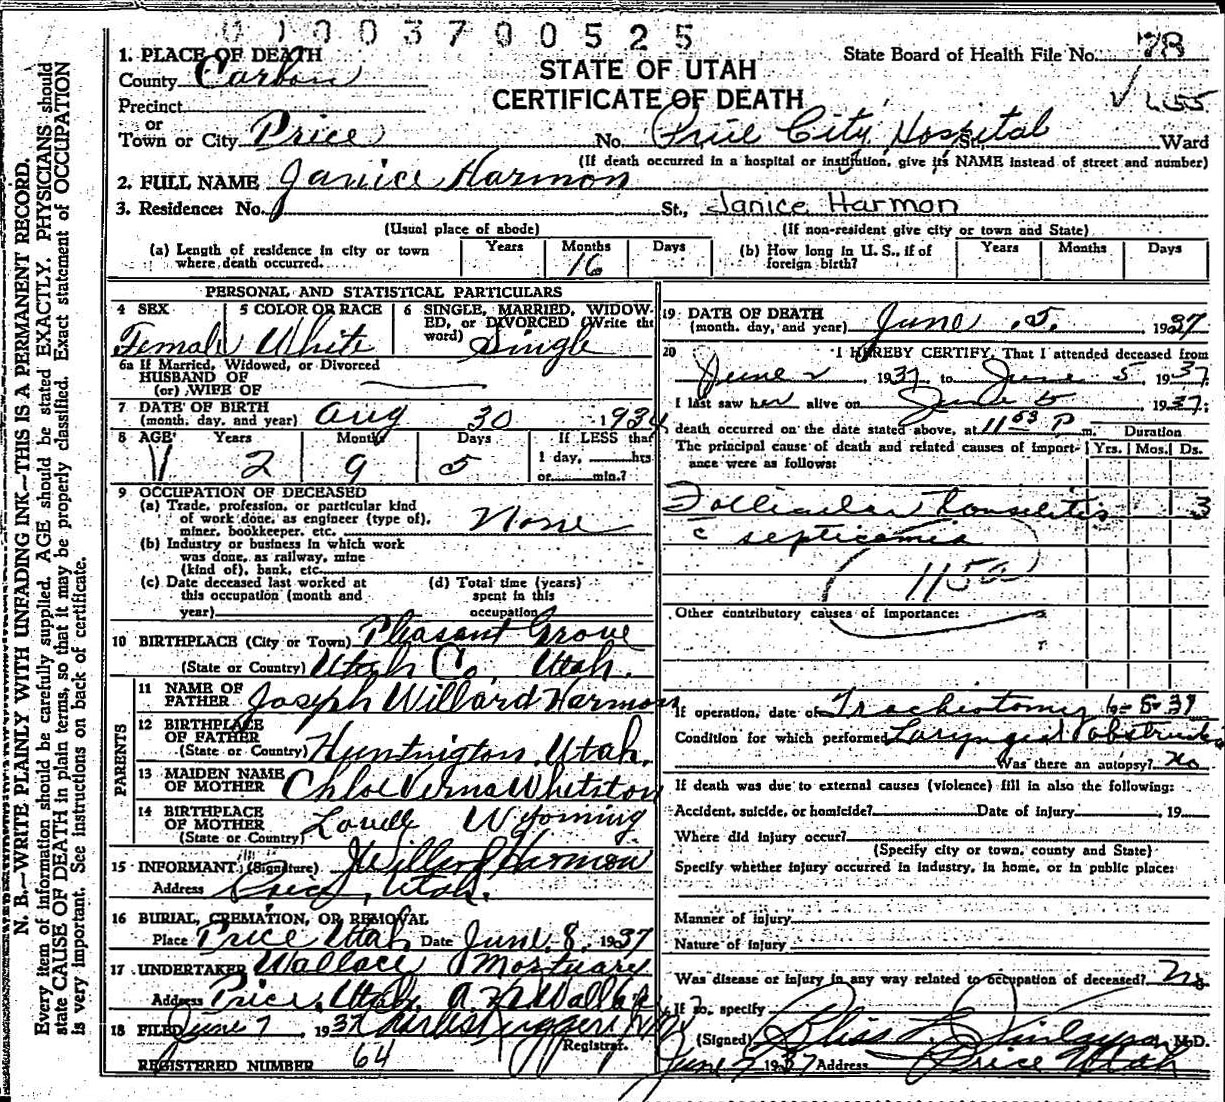 0 1 0 0 3 7 0 0 5 2 5
1. PLACE OF DEATH
County Carbon
Precinct
or
Town or City Price No. Price City Hospital St. Ward
(If death occurred in a hospital or institution, give its NAME instead of street and number)
State Board of Health File No. 78
STATE OF UTAH
CERTIFICATE OF DEATH
√ 455
2. FULL NAME Janice Harmon
3. Residence: No. St., Janice Harmon
(Usual place of abode) (If non-resident give city or town and State)
(a) Length of residence in city or town where death occurred. Years Months 16 Days
(b) How long in U. S., if of foreign birth? Years Months Days
PERSONAL AND STATISTICAL PARTICULARS
4 SEX Female
5 COLOR OR RACE White
6 SINGLE, MARRIED, WIDOWED, or DIVORCED (Write the word) Single
6a If Married, Widowed, or Divorced
HUSBAND OF
(or) WIFE OF
7 DATE OF BIRTH
(month, day, and year) Aug 30 1934
8 AGE Years 2 Months 9 Days 5 If LESS than 1 day, hrs or min.?
9 OCCUPATION OF DECEASED
(a) Trade, profession, or particular kind of work done, as engineer (type of), miner, bookkeeper, etc. None
(b) Industry or business in which work was done, as railway, mine (kind of), bank, etc.
(c) Date deceased last worked at this occupation (month and year)
(d) Total time (years) spent in this occupation
10 BIRTHPLACE (City or Town) Pleasant Grove
(State or Country) Utah Co. Utah.
PARENTS
11 NAME OF FATHER Joseph Willard Harmon
12 BIRTHPLACE OF FATHER
(State or Country) Huntington, Utah.
13 MAIDEN NAME OF MOTHER Chloe Verna Whetston
14 BIRTHPLACE OF MOTHER
(State or Country) Lovell Wyoming
15 INFORMANT (Signature) J Willard Harmon
Address Price, Utah.
16 BURIAL, CREMATION, OR REMOVAL
Place Price Utah Date June 8, 1937
17 UNDERTAKER Wallace Mortuary
Address Price, Utah.
18 FILED June 7, 1937
Registrar.
REGISTERED NUMBER 64
19 DATE OF DEATH
(month, day, and year) June 5, 1937
20 I HEREBY CERTIFY, That I attended deceased from
June 2, 1937 to June 5, 1937
I last saw her alive on June 5 1937;
death occurred on the date stated above, at 11 53 P m.
The principal cause of death and related causes of importance were as follows:
Duration
Yrs. Mos. Ds.
Follicular Tonselitis 3
c̄ septicemia
115a
Other contributory causes of importance:
If operation, date of Tracheiotomy 6-5-37
Condition for which performed Laryngeal obstruction
Was there an autopsy? no
If death was due to external causes (violence) fill in also the following:
Accident, suicide, or homicide? Date of injury , 19
Where did injury occur?
(Specify city or town, county and State)
Specify whether injury occurred in industry, in home, or in public place:
Manner of injury
Nature of injury
Was disease or injury in any way related to occupation of deceased? No
If so, specify
(Signed) Bliss L. Finlayson, M.D.
June 7 1937 Address Price Utah
N. B.—WRITE PLAINLY WITH UNFADING INK—THIS IS A PERMANENT RECORD.
Every item of information should be carefully supplied. AGE should be stated EXACTLY. PHYSICIANS should
state CAUSE OF DEATH in plain terms, so that it may be properly classified. Exact statement of OCCUPATION
is very important. See instructions on back of certificate.